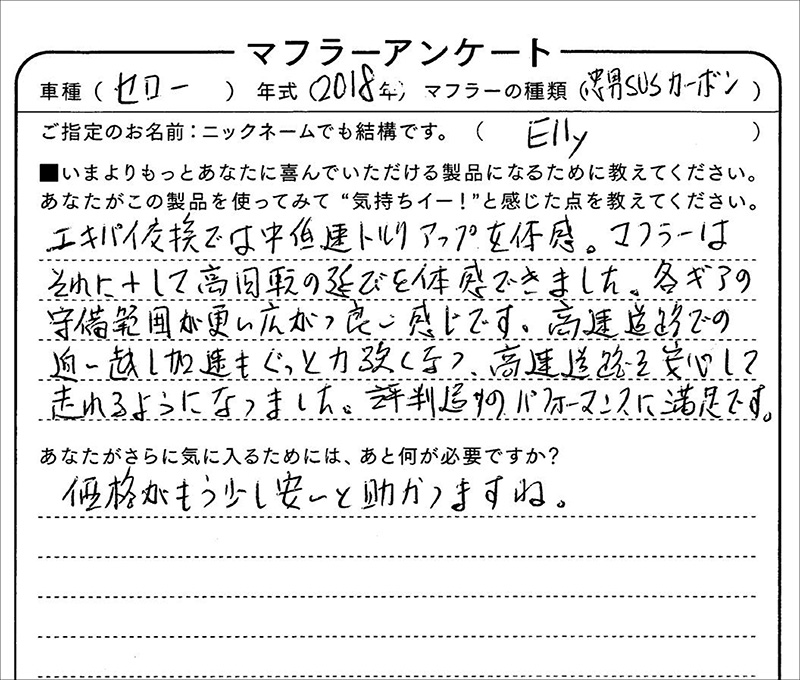 マフラーアンケート
車種（セロー）年式（2018年）マフラーの種類（忠男SUSカーボン）
ご指定のお名前：ニックネームでも結構です。（ Elly ）
■いまよりもっとあなたに喜んでいただける製品になるために教えてください。
あなたがこの製品を使ってみて“気持ちイー！”と感じた点を教えてください。
エキパイ交換では中低速トルクアップを体感。マフラーは
それに＋して高回転の延びを体感できました。各ギアの
守備範囲が更に広がって良い感じです。高速道路での
追い越し加速もぐっと力強くなって、高速道路を安心して
走れるようになりました。評判通りのパフォーマンスに満足です。
あなたがさらに気に入るためには、あと何が必要ですか？
価格がもう少し安いと助かりますね。